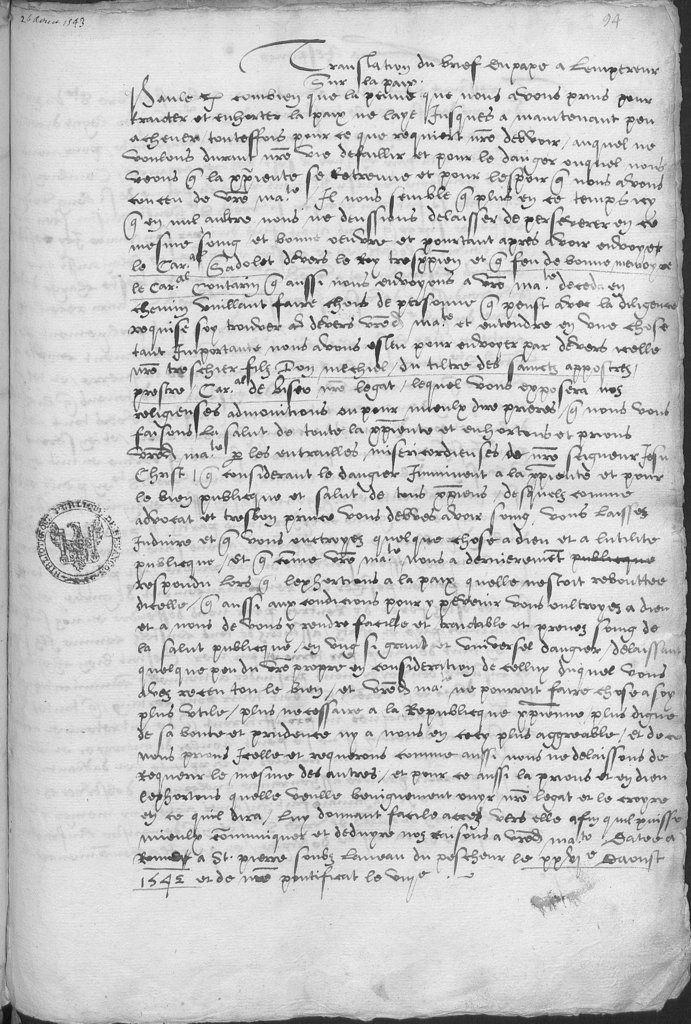 26 aoust 1543
94
Translation du brief du pape a Lempereur
Sur la paix.
Paule etc. combien que la peine que nous avons prins pour
traicter et enhorter la paix ne laye Jusques a maintenant peu
achever touteffois pour ce que requiert nre debvoir / auquel ne
voulons durant nre vie defaillir et pour le danger ouquel nous
veons q la xpiente se retreuve et pour lespoir q nous avons
conceu de vre ma.te Il nous semble q plus en ce temps icy
q en nul aultre nous ne deussions delaisser de perseverer en ce
mesme soing et bonne oeuvre et pourtant apres avoir envoyez
le Car.al Sadolet devers le Roy treschpien et q feu de bonne memoyre
le Car.al Contarin q aussi nous envoyons a vre ma.te deceda en
chemin vuillant faire chois de personne q peust avec la diligence
requise soy trouver devers vred ma.te et entendre en une chose
tant Importante nous avons esleu pour envoyer par devers icelle
nre treschier filz Don michiel / du tiltre des sainctz appostres /
prestre / Car.al de Viseo nre legat / lequel vous exposera noz
religieuses admonitions ou pour mieulx dire prieres / q nous vous
faisons la salut de toute la xpiente et enhortons et prions
vred ma.te p les entrailles misericordieuses de nre seigneur Jesu
Christ / q considerant le dangier Imminent a la xpiente et pour
le bien publicque et salut de tous xpiens / desquelz comme
advocat et tresbon prince vous debves avoir soing vous laissez
Induire et q vous ouctroyez quelque chose a dieu et a lutilite
publicque / et q come vre ma.te nous a dernierement publicque
respondu lors q lexhortions a la paix quelle nestoit reboutee
dicelle / q aussi aux condicions pour y pvenir vous oultroyez a dieu
et a nous de vous y rendre facille et traictable et prenez soing de
la salut publicque / en ung si grand et universel dangier / delaissant
quelque peu du vre propre en consideration de celluy duquel vous
avez receu tou le bien / et vred ma.te ne pourroit faire chose a soy
plus utile / plus necessaire a la Republicque xpienne / plus digne
de sa bonte et prudence ny a nous en cecy plus aggreable / et de ce
nous prions Icelle et requerons comme aussi nous ne delaissons de
requerir le mesme des autres / et pour ce aussi la prions et en dieu
lexhortons quelle veulle benignement ouyr nre legat et le croyre
et ce quil dira / luy donnant facile acces vers elle afin quil puisse
mieulx comuniquer et deduyre noz raisons a vred ma.te Datee a
Rome a St. pierre soubz Laneau du pescheur le xxvi.e Daoust
1542 et de nre pontificat le viii.e